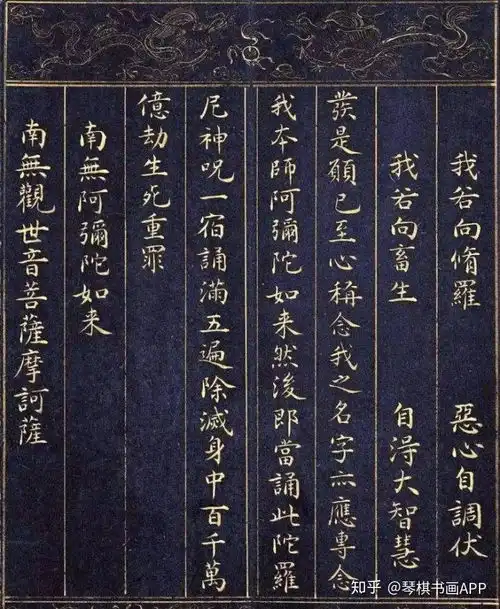 我若向脩羅　惡心自調伏
我若向畜生　自淂大智慧
發是願已至心稱念我之名字亦應專念
我本師阿彌陀如来然後即當誦此陀羅
尼神呪一宿誦滿五遍除滅身中百千萬
億劫生死重罪
南無阿彌陀如来
南無觀世音菩薩摩訶薩
知乎 @琴棋书画APP